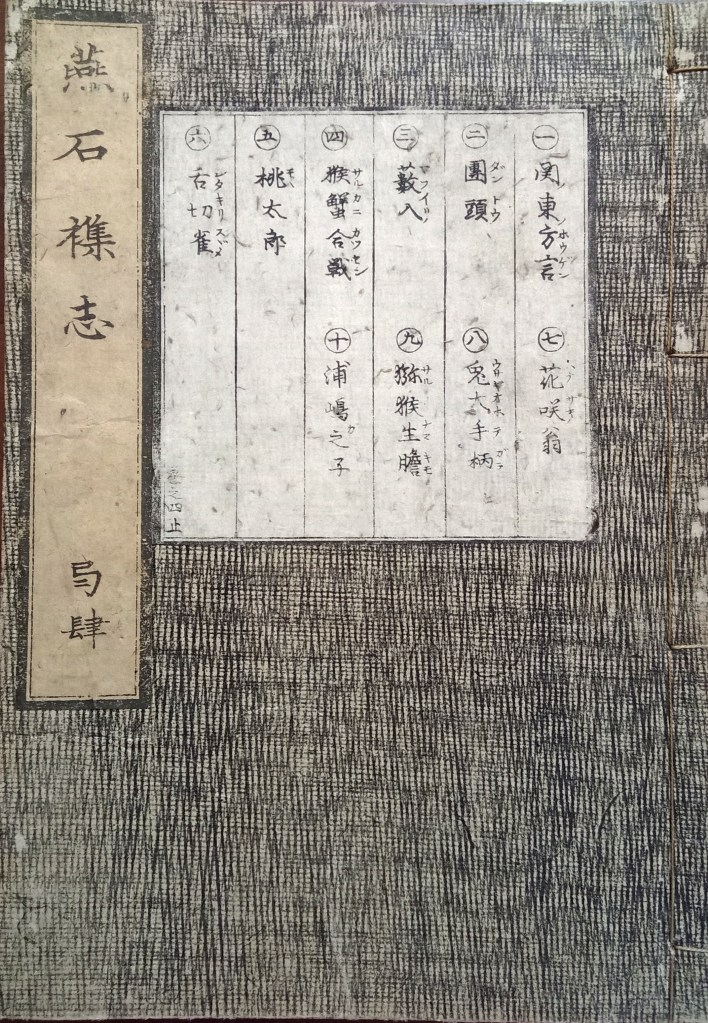 燕石襍志
㊀関東方言
ノホウゲン
㊁團頭
ダントウ
㊂藪入
ヤブイリ
㊃猴蟹合戦
サルカニカツセン
㊄桃太郎
モヽ
㊅舌切雀
シタキリスヾメ
㊆花咲翁
ハナサキ
㊇兎大手柄
ウサギオホテガラ
㊈獼猴生膽
サルナマキモ
㊉浦嶋之子
カ
四止